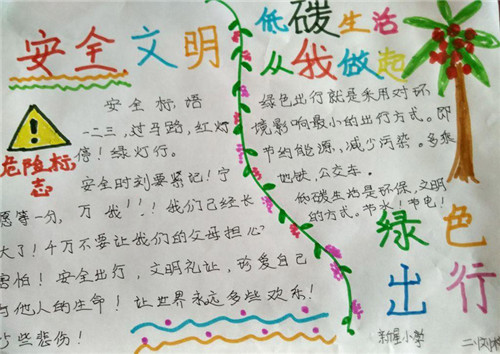 安全文明
安全标语
一二三，过马路，红灯
停！绿灯行。
安全时刻要紧记！宁
愿等一分，万
我！！！我们已经长
大了！千万不要让我们的父母担心
害怕！安全出行，文明礼让，珍爱自己
与他人的生命！让世界永远多些欢乐！
少些悲伤！
危险标
志
低碳生活
从我做起
绿色出行就是采用对环
境影响最小的出行方式。即
节约能源，减少污染。多乘
地铁，公交车。
低碳生活是环保，文明
的方式。节水！节电！
绿色
出行
新屋小学